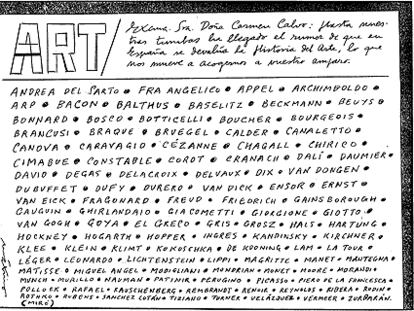 ART/
Excma. Sra. Doña Carmen Calvo: Hasta nues-
tras tumbas ha llegado el rumor de que en
España se devalúa la Historia del Arte, lo que
nos mueve a acogernos a vuestro amparo.
ANDREA DEL SARTO • FRA ANGELICO • APPEL • ARCHIMPOLDO •
ARP • BACON • BALTHUS • BASELITZ • BECKMANN • BEUYS •
BONNARD • BOSCO • BOTTICELLI • BOUCHER • BOURGEOIS •
BRANCUSI • BRAQUE • BRUEGEL • CALDER • CANALETTO •
CANOVA • CARAVAGIO • CÉZANNE • CHAGALL • CHIRICO •
CIMABUE • CONSTABLE • COROT • CRANACH • DALÍ • DAUMIER •
DAVID • DEGAS • DELACROIX • DELVAUX • DIX • VAN DONGEN •
DUBUFFET • DUFY • DURERO • VAN DICK • ENSOR • ERNST •
VAN EICK • FRAGONARD • FREUD • FRIEDRICH • GAINSBOROUGH •
GAUGUIN • GHIRLANDAIO • GIACOMETTI • GIORGIONE • GIOTTO •
VAN GOGH • GOYA • EL GRECO • GRIS • GROSZ • HALS • HARTUNG •
HOCKNEY • HOGARTH • HOPPER • INGRES • KANDINSKY • KIRCHNER •
KLEE • KLEIN • KLIMT • KOKOSCHKA • DE KOONING • LAM • LA TOUR •
LÉGER • LEONARDO • LICHTENSTEIN • LIPPI • MAGRITTE • MANET • MANTEGNA •
MATISSE • MIGUEL ANGEL • MODIGLIANI • MONDRIAN • MONET • MOORE • MORANDI •
MUNCH • MURILLO • NAUMAN • PATINIR • PERUGINO • PICASSO • PIERO DE LA FRANCESCA •
POLLOCK • RAFAEL • RAUSCHENBERG • REMBRANDT • RENOIR • REYNOLDS • RIBERA • RODIN •
ROTHKO • RUBENS • SANCHEZ COTÁN • TIZIANO • TURNER • VELÁZQUEZ • VERMEER • ZURBARÁN.
(MIRÓ)